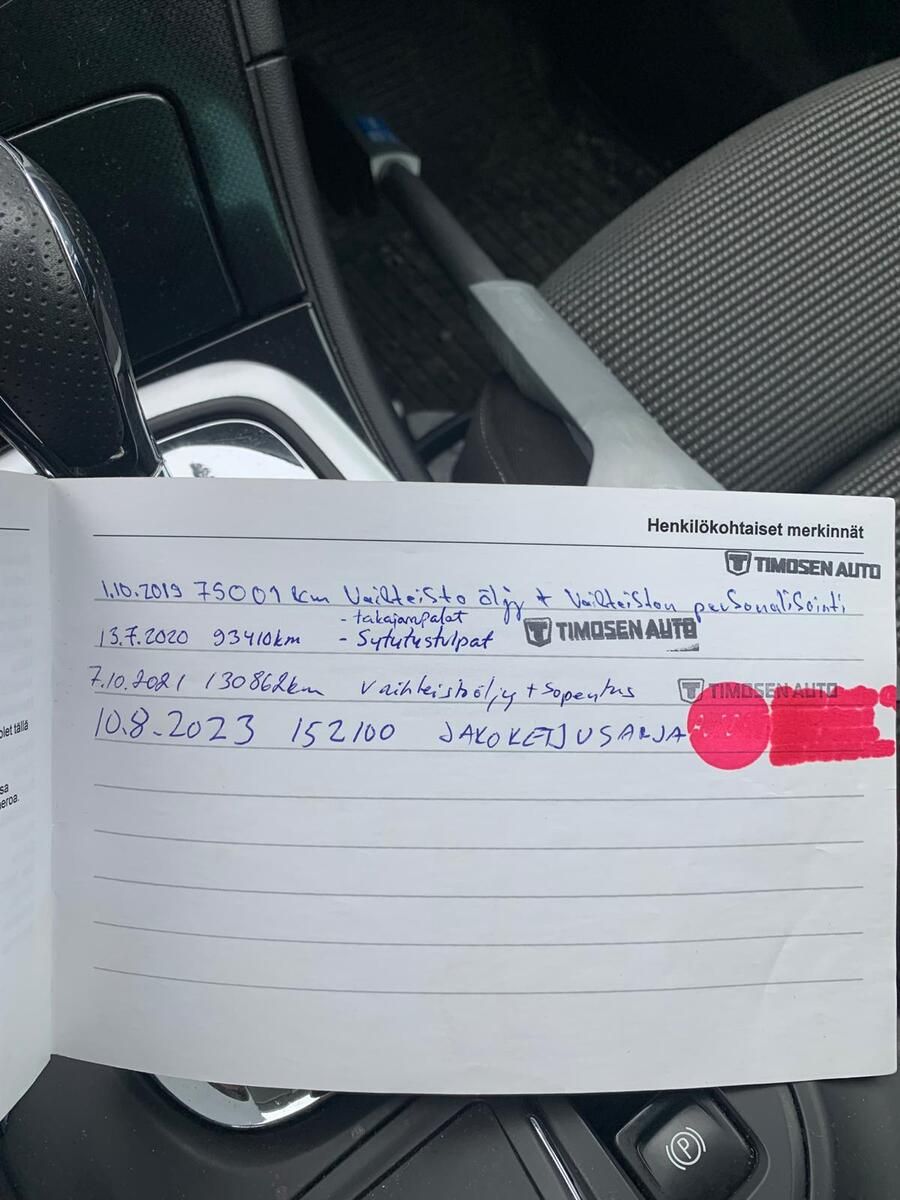 Henkilökohtaiset merkinnät
TIMOSEN AUTO
1.10.2019 75001 km Vaihteisto öljy + Vaihteiston personalisointi
- takajarrupalat
13.7.2020 93410km - Sytutustulpat TIMOSEN AUTO
7.10.2021 130862km Vaihteistoöljy + sopeutus TIMOSEN AUTO
10.8.2023 152100 JAKOKETJUSARJA
olet tällä
sa
eroa.
P